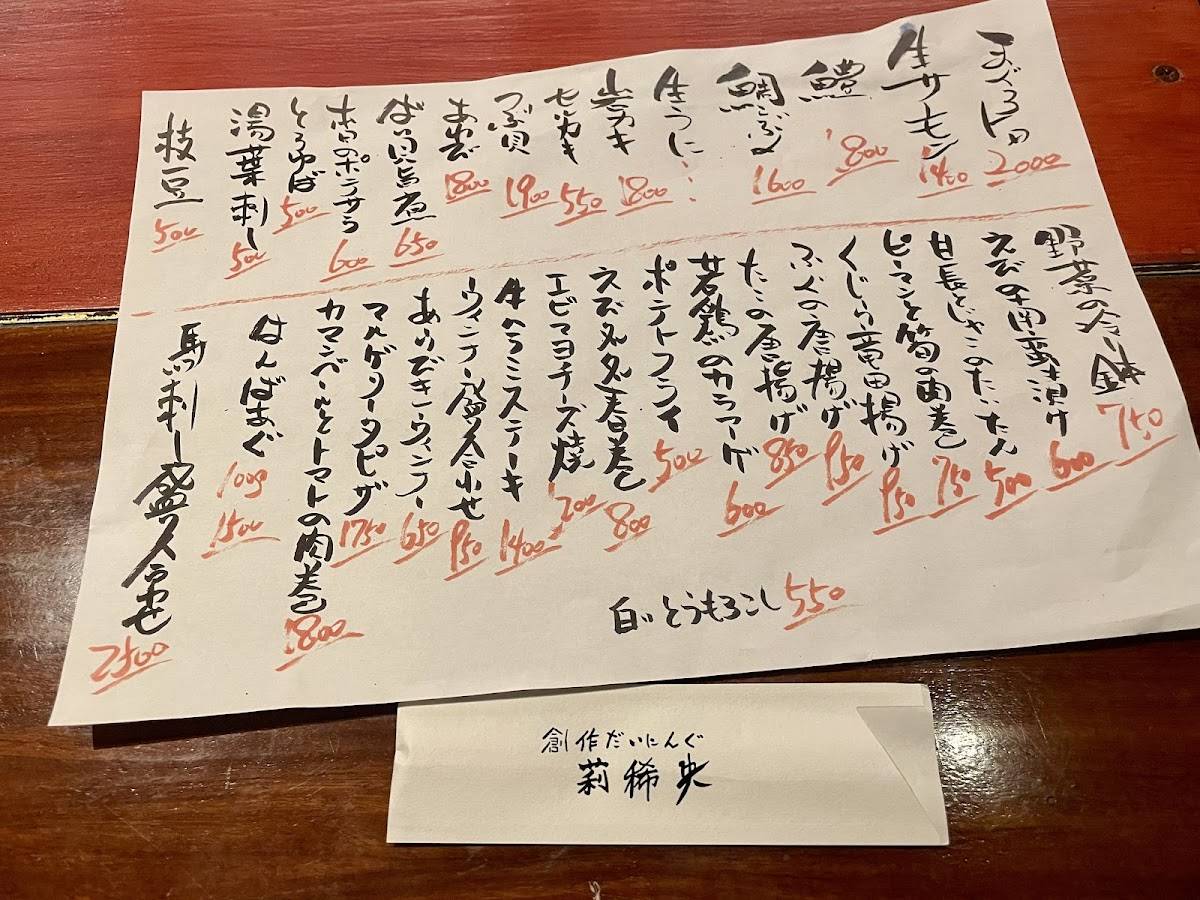 まぐろトロ 2000
生サーモン 1400
鱧 1800
鯛こぶ〆 1600
生うに
岩カキ 1800
セルカキ 550
つぶ貝 1900
あわび 1800
ばい貝旨煮 650
本日のポテサラ 600
とろゆば 500
湯葉刺し 500
枝豆 500
野菜の冷し鉢 750
えびの南蛮漬け 600
甘長とじゃこのたいたん 500
ピーマンと筍の肉巻 750
くじら竜田揚げ 950
ふぐの唐揚げ 950
たこの唐揚げ 850
若鶏のカラアゲ 600
ポテトフライ 500
えび 春巻 800
エビマヨチーズ焼 1200
牛ハラミステーキ 1400
ウィンナー盛り合わせ 950
あらびきウィンナー 650
マルゲリータピザ 1750
カマンベールとトマトの肉巻 1800
はんばあぐ 100g 1500
馬刺し盛り合わせ 2500
白いとうもろこし 550
創作だいにんぐ
莉稀央